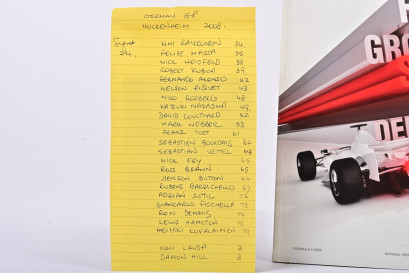 GERMAN GP
HOCKENHEIM 2008.
KIMI RAIKKONEN 34.
FELIPE MASSA 35
NICK HEIDFELD 38
ROBERT KUBICA 39.
FERNANDO ALONSO 42
NELSON PIQUET 43
NICO ROSBERG 48
KAZUKI NAKAJIMA 49.
DAVID COULTHARD 52.
MARK WEBBER 53
FRANZ TOST 61
SEBASTIEN BOURDAIS 64
SEBASTIAN VETTEL
NICK FRY 65
ROSS BRAWN 65
JENSON BUTTON
RUBENS BARRICHELLO 67
ADRIAN SUTIL 72
GIANCARLO FISICHELLA 73
RON DENNIS
LEWIS HAMILTON 78
HEIKKI KOVALAINEN 79
NIKI LAUDA 3
DAMON HILL 3